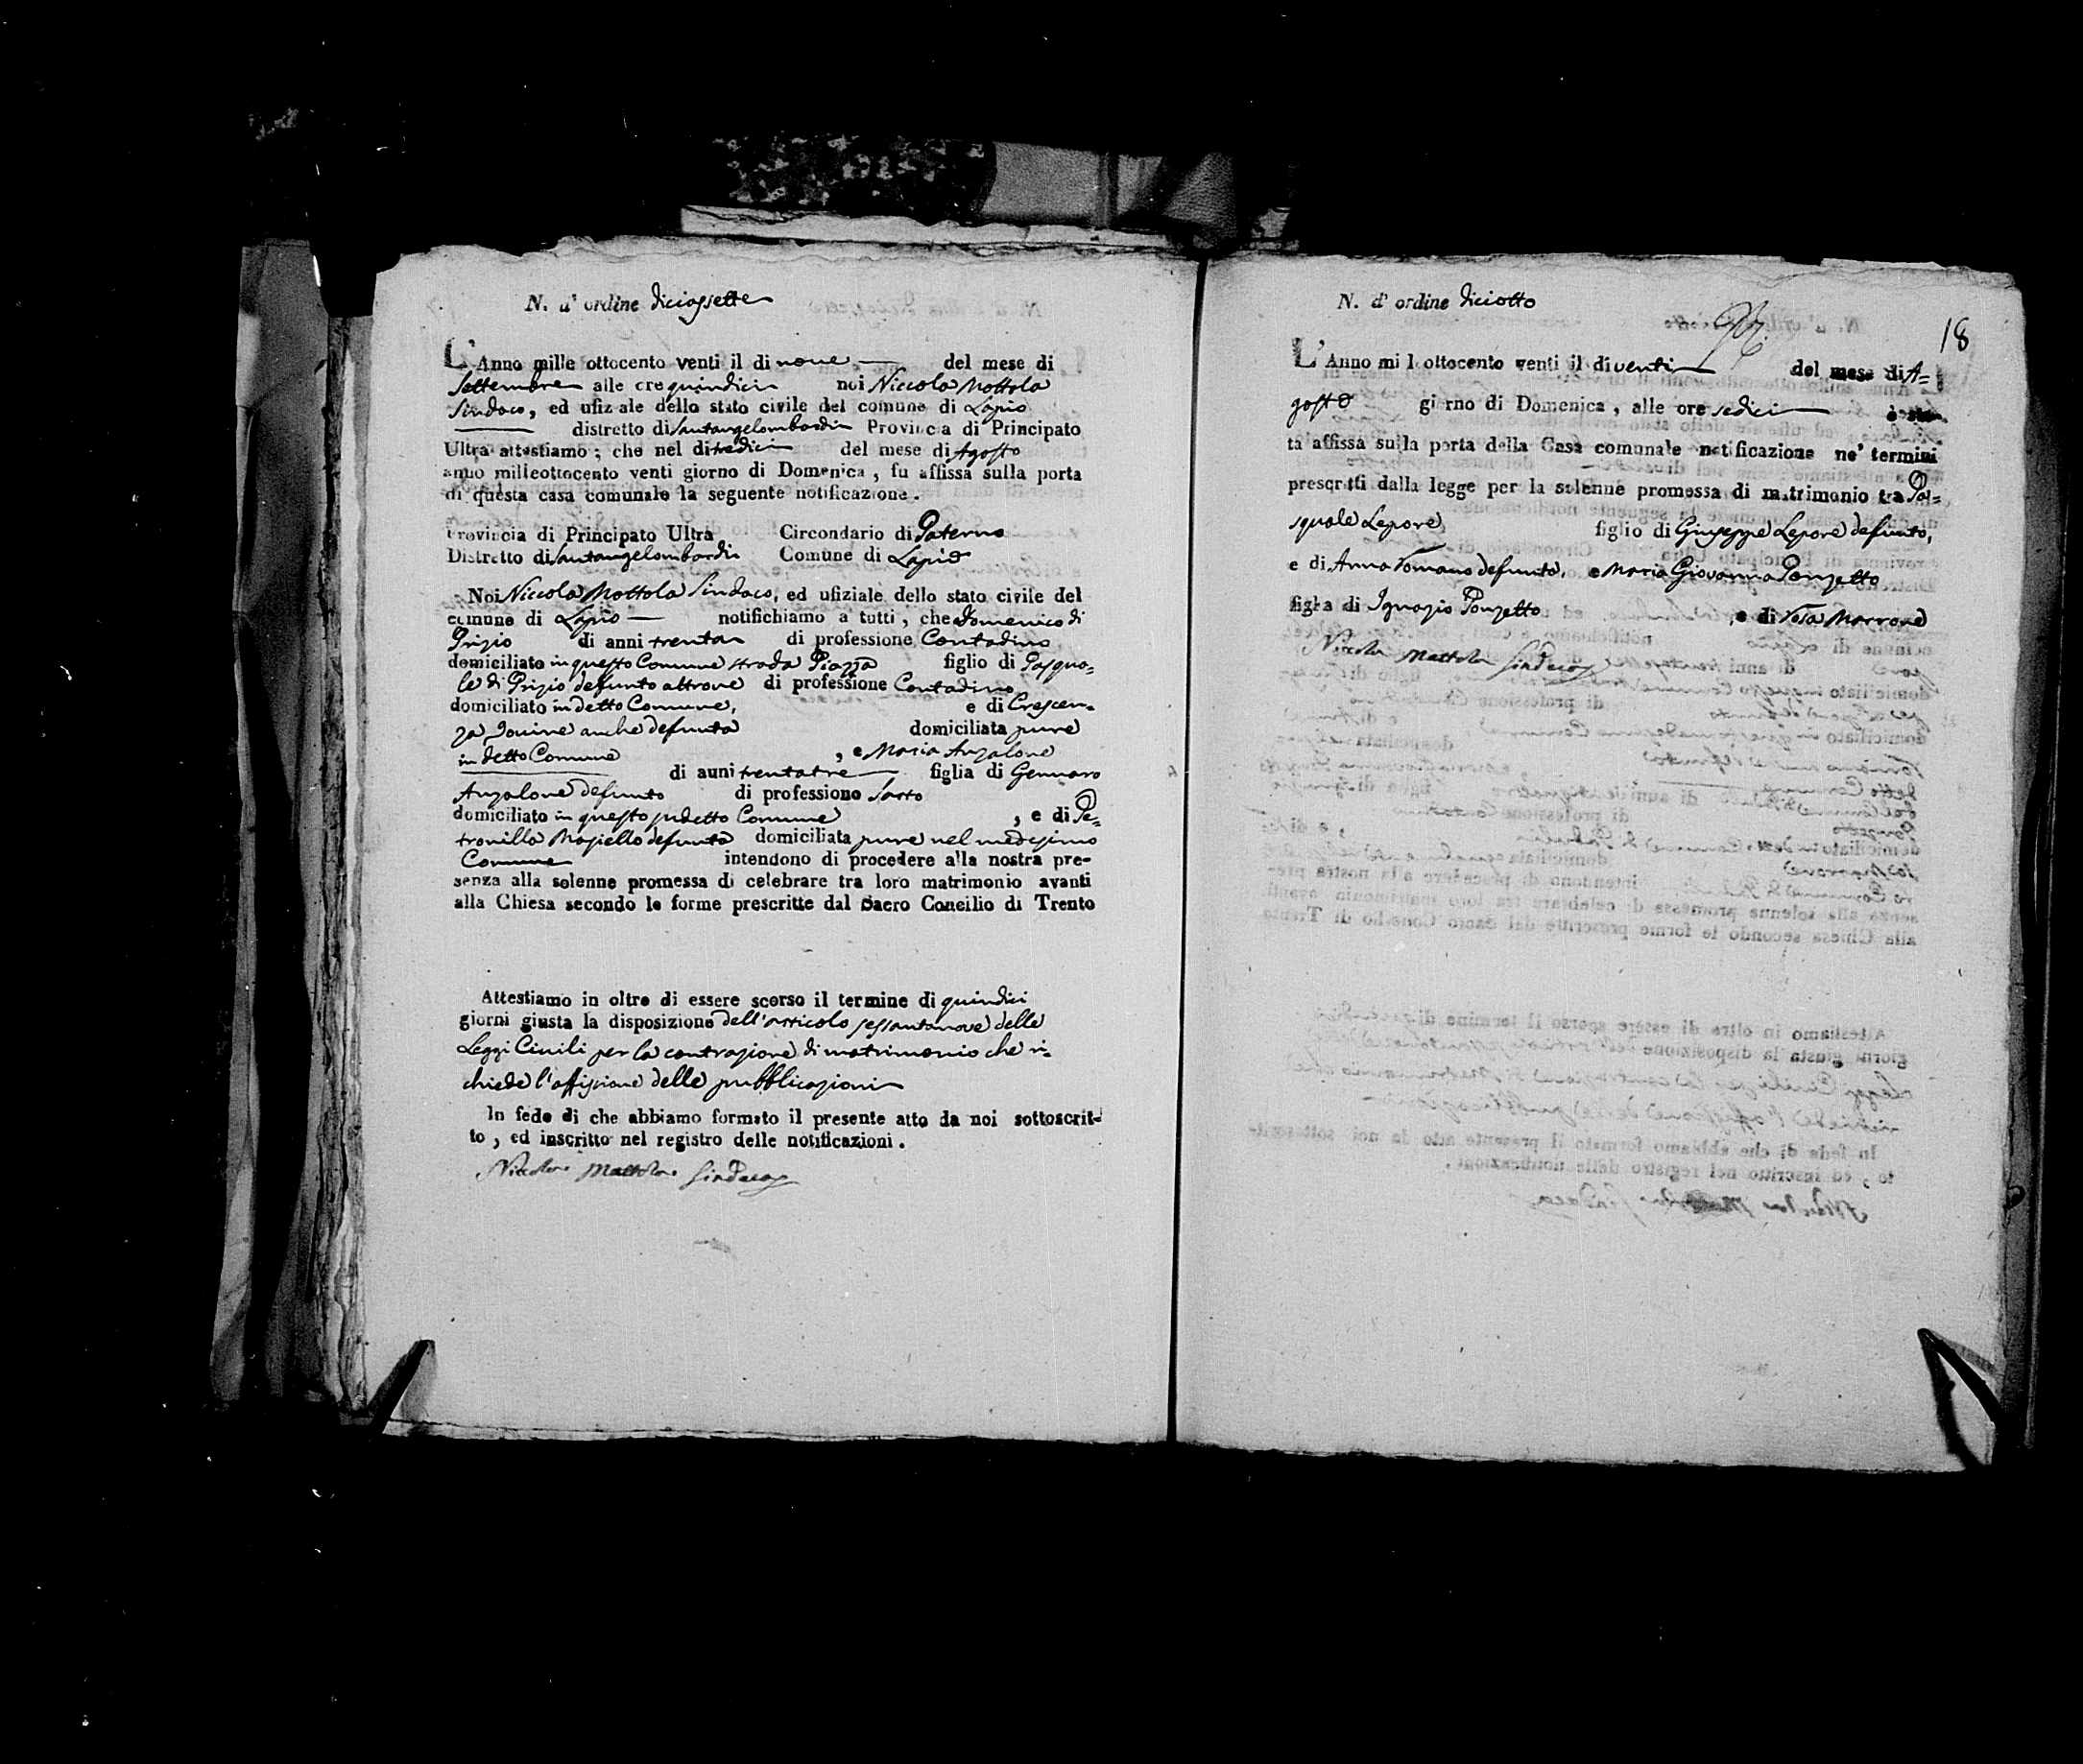 N. d' ordine diciassette
L'Anno mille ottocento venti il di nove del mese di
Settembre alle ore quindici noi Niccola Mottola
Sindaco, ed ufiziale dello stato civile del comune di Lapio
distretto di Santangelombardi Provincia di Principato
Ultra attestiamo ; che nel di tredici del mese di Agosto
anno milleottocento venti giorno di Domenica , fu affissa sulla porta
di questa casa comunale la seguente notificazione .
Provincia di Principato Ultra Circondario di Paterno
Distretto di Santangelombardi Comune di Lapio
Noi Niccola Mottola Sindaco, ed ufiziale dello stato civile del
comune di Lapio notifichiamo a tutti , che Domenico di
Prizio di anni trenta di professione Contadino
domiciliato in questo Comune strada Piazza figlio di Pasqua=
le di Prizio defunto altrove di professione Contadino
domiciliato in detto Comune, e di Crescen=
za Iovine anche defunta domiciliata pure
in detto Comune , e Maria Anzalone
di anni trentatre figlia di Gennaro
Anzalone defunto di professione Sarto
domiciliato in questo sudetto Comune , e di Pe=
tronilla Masiello defunta domiciliata pure nel medesimo
Comune intendono di procedere alla nostra pre-
senza alla solenne promessa di celebrare tra loro matrimonio avanti
alla Chiesa secondo le forme prescritte dal Sacro Concilio di Trento
Attestiamo in oltre di essere scorso il termine di quindici
giorni giusta la disposizione dell'articolo sessantanove delle
Leggi Civili per la contrazione di matrimonio che ri=
chiede l'affissione delle pubblicazioni
In fede di che abbiamo formato il presente atto da noi sottoscrit-
to , ed inscritto nel registro delle notificazioni .
Niccola Mottola Sindaco
N. d' ordine diciotto
18
L'Anno mi l ottocento venti il di venti del mese di A=
gosto giorno di Domenica , alle ore sedici è sta-
ta affissa sulla porta della Casa comunale notificazione ne' termini
prescritti dalla legge per la solenne promessa di matrimonio tra Pa=
squale Lepore figlio di Giuseppe Lepore defunto,
e di Anna Romano defunta, e Maria Giovanna Ponzetto
figlia di Ignazio Ponzetto , e di Rosa Marrone
Niccola Mottola Sindaco